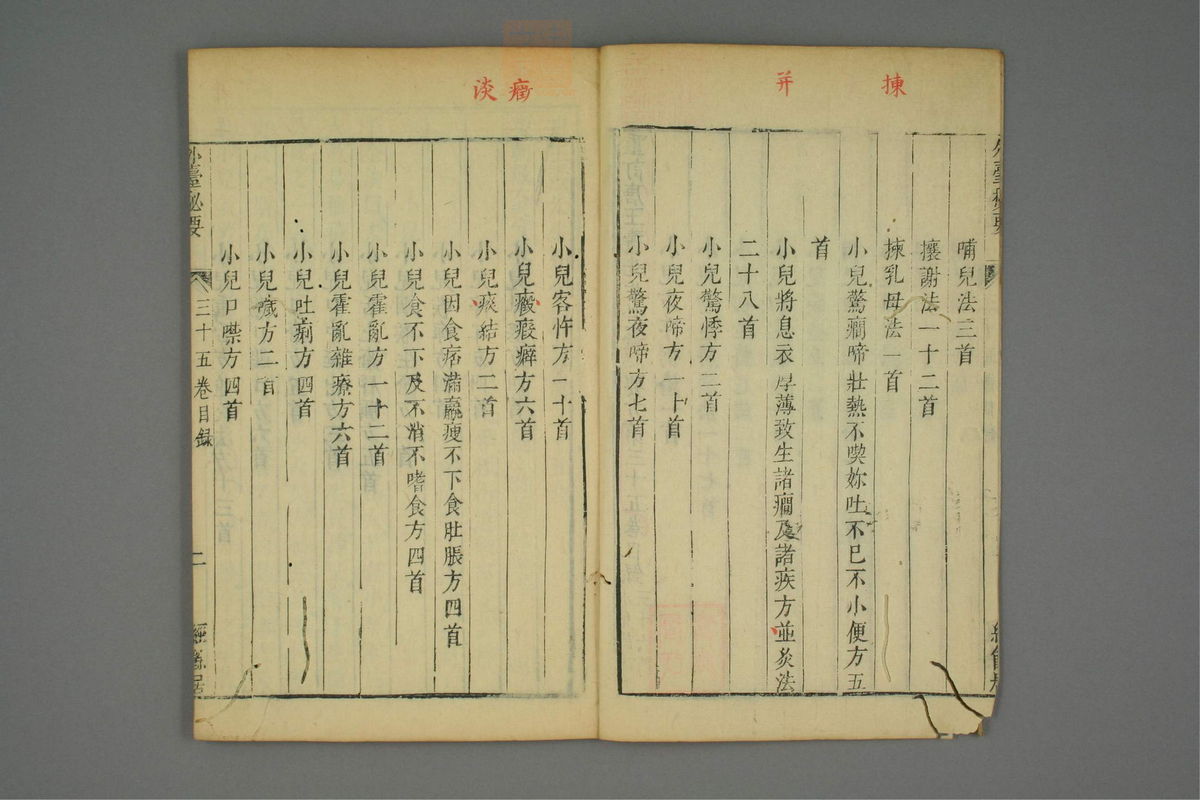 揀
并
哺兒法三首
攘謝法一十二首
揀乳母法一首
小兒驚癎啼壯熱不喫妳吐不已不小便方五
首
小兒將息衣厚薄致生諸癎及諸疾方並灸法
二十八首
小兒驚悸方二首
小兒夜啼方一十首
小兒驚夜啼方七首
癥
淡
小兒客忤方一十首
小兒癥瘕癖方六首
小兒痰結方二首
小兒因食痞滿羸瘦不下食肚脹方四首
小兒食不下及不消不嗜食方四首
小兒霍亂方一十二首
小兒霍亂雜療方六首
小兒吐痢方四首
小兒癇方二首
小兒口噤方四首
外臺秘要
三十五卷目録
二
經餘居